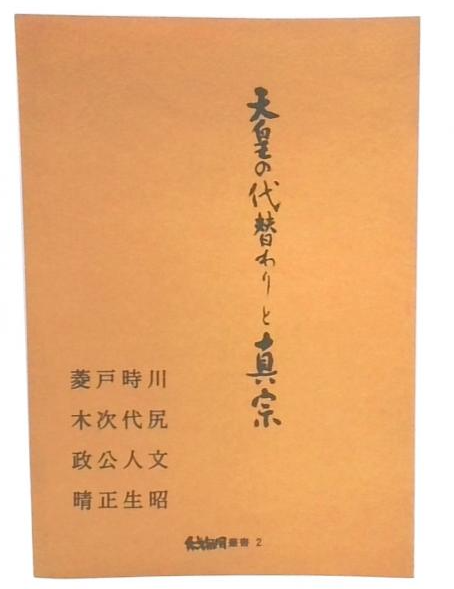 天皇の代替わりと真宗
川尻文昭
時代人生
戸次公正
菱木政晴
叢書 2